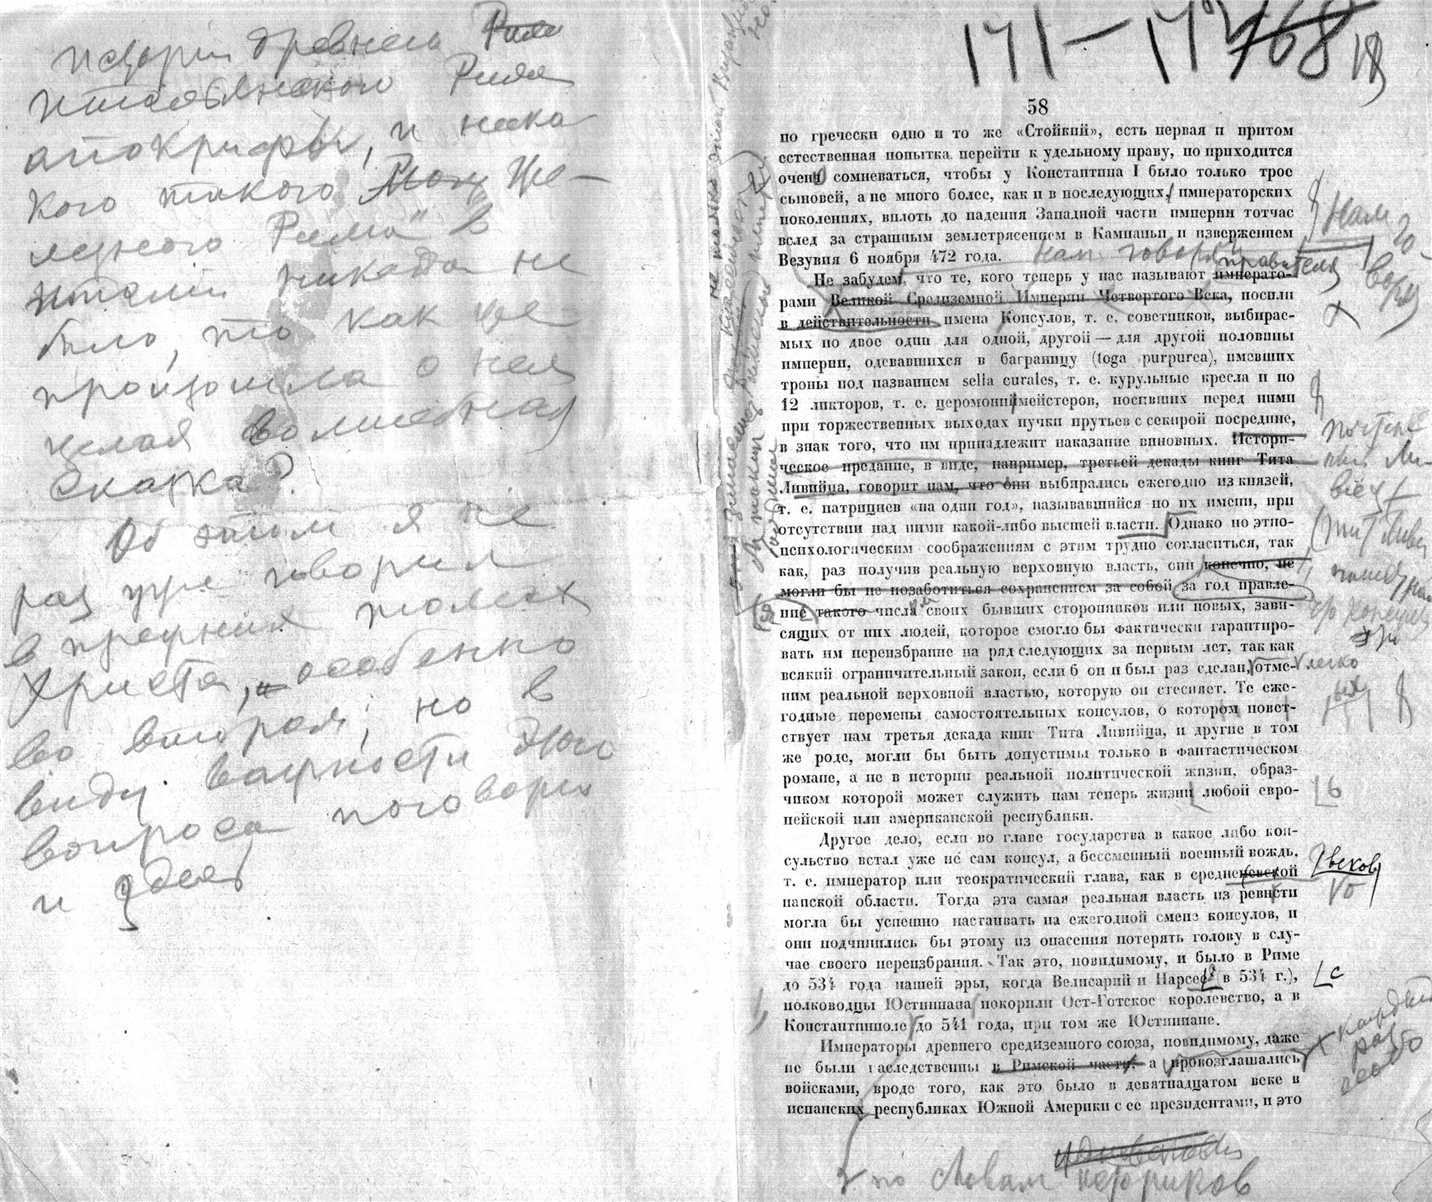 истории древнего Рима
итальянского Рима
апокрифы, и ника
кого такого Це-
Рима" в
Италии никогда не
было, то как же
произошла о нем
целая волшебная
сказка?
Об этом я не
раз уже говорил
в прежних томах
Христа, особенно
во втором, но в
виду важности этого
вопроса поговорю
и здесь
171—17 168
58
по гречески одно и то же «Стойкий», есть первая и притом
естественная попытка перейти к удельному праву, но приходится
очень сомневаться, чтобы у Константина I было только трое
сыновей, а не много более, как и в последующих императорских
поколениях, вплоть до падения Западной части империи тотчас
вслед за страшным землетрясением в Кампаньи и извержением
Везувия 6 ноября 472 года. нам говоря
Не забудем, что те, кого теперь у нас называют императо-
правителя
рами Великой Средиземной Империи Четвертого Века, носили
в действительности имена Консулов, т. е. советников, выбирае-
мых по двое один для одной, другой — для другой половины
империи, одевавшихся в багряницу (toga purpurea), имевших
троны под названием sella curales, т. е. курульные кресла и по
12 ликторов, т. е. церемониймейстеров, носивших перед ними
при торжественных выходах пучки прутьев с секирой посредине,
в знак того, что им принадлежит наказание виновных. Истори-
ческое предание, в виде, например, третьей декады книг Тита
Ливийца, говорит нам, что они выбирались ежегодно из князей,
т. е. патрициев «на один год», называвшийся по их имени, при
отсутствии над ними какой-либо высшей власти. Однако по этно-
психологическим соображениям с этим трудно согласиться, так
как, раз получив реальную верховную власть, они конечно, не
могли бы не позаботиться сохранением за собой за год правле-
ние такого числа своих бывших сторонников или новых, зави-
сящих от них людей, которое смогло бы фактически гарантиро-
вать им переизбрание на ряд следующих за первым лет, так как
всякий ограничительный закон, если б он и был раз сделан, отме-
ним реальной верховной властью, которую он стесняет. Те еже-
годные перемены самостоятельных консулов, о котором повет-
ствует нам третья декада книг Тита Ливийца, и другие в том
же роде, могли бы быть допустимы только в фантастическом
романе, а не в истории реальной политической жизни, образ-
чиком которой может служить нам теперь жизнь любой евро-
пейской или американской республики.
Другое дело, если во главе государства в какое либо кон-
сульство встал уже не сам консул, а бессменный военный вождь,
т. е. император или теократический глава, как в средневевской
папской области. Тогда эта самая реальная власть из ревности
могла бы успешно настаивать на ежегодной смене консулов, и
они подчинились бы этому из опасения потерять голову в слу-
чае своего переизбрания. Так это, повидимому, и было в Риме
до 534 года нашей эры, когда Велисарий и Нарсес (в 534 г.),
полководцы Юстиниана покорили Ост-Готское королевство, а в
Константинополе до 541 года, при том же Юстиниане.
Императоры древнего средиземного союза, повидимому, даже
не были наследственны в Римской части, а провозглашались
войсками, вроде того, как это было в девятнадцатом веке в
испанских республиках Южной Америки с ее президентами, и это
нам го
воря
легко
ых
в
веков
с
каждый
раз
по словам историков